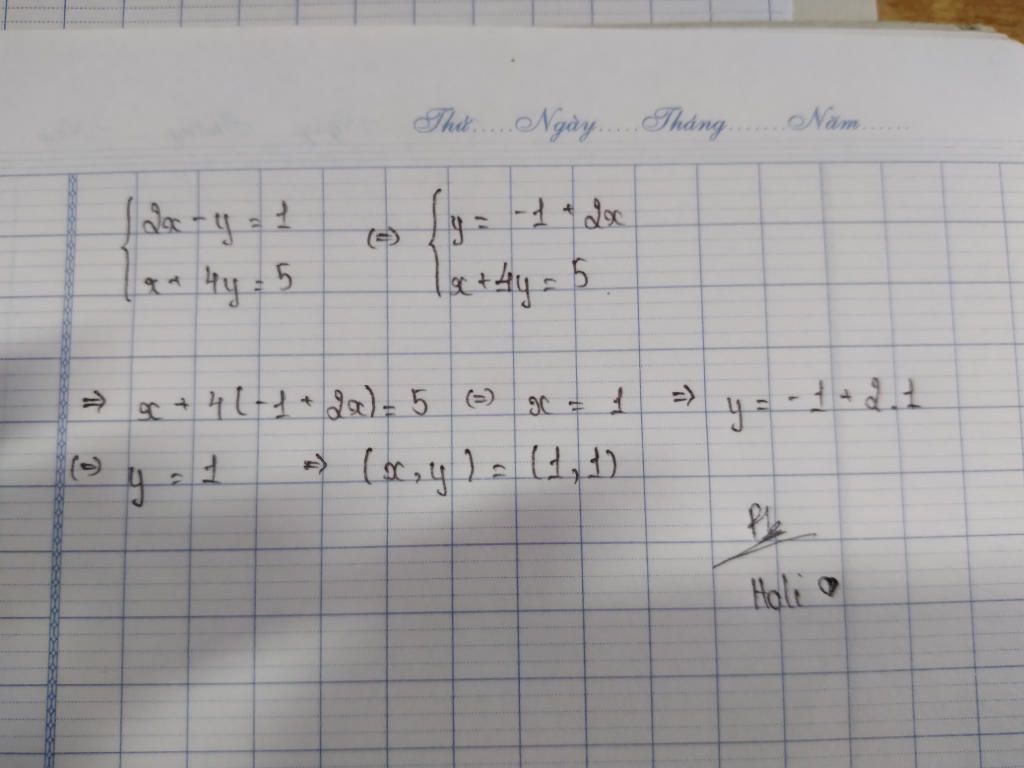 Thứ.....Ngày.....Tháng.......Năm......
{2x - y = 1 (=) {y = -1 + 2x
{x + 4y = 5 {x + 4y = 5
=> x + 4(-1 + 2x) = 5 (=) x = 1 => y = -1 + 2.1
(=) y = 1 => (x, y) = (1, 1)
Hali